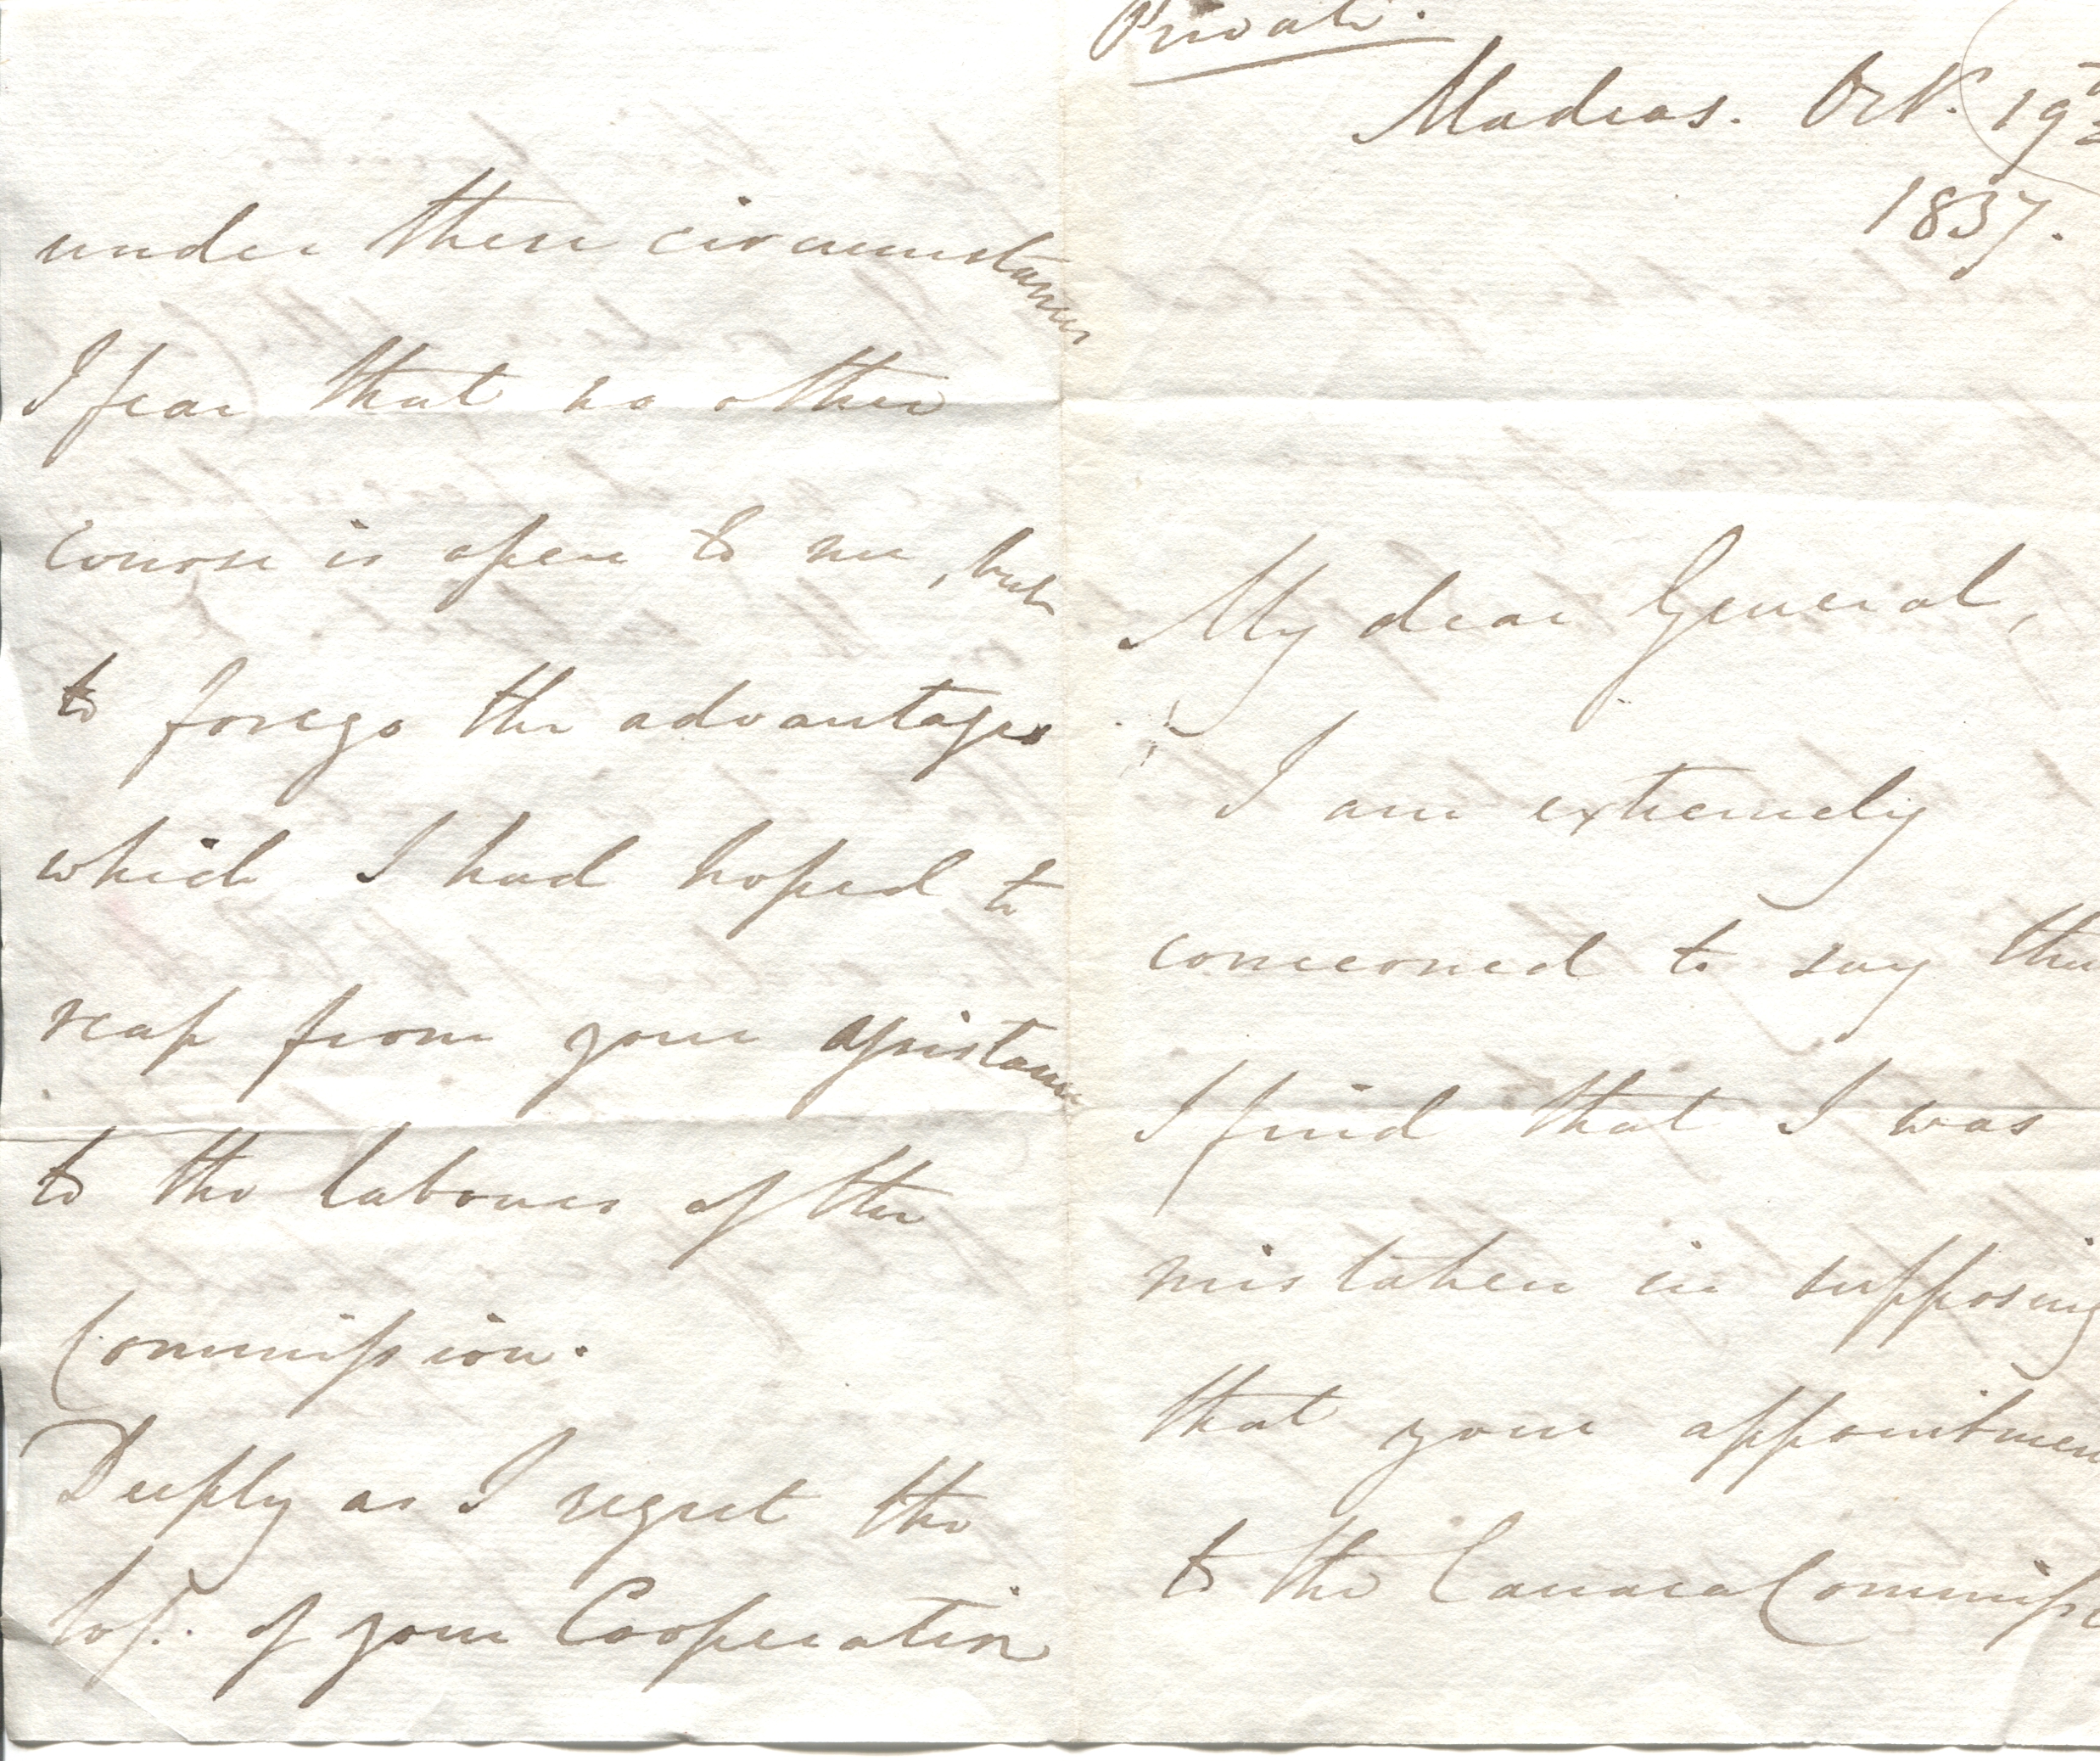 Private.
Madras. Oct. 19th
1837.
My dear General,
I am extremely
concerned to say tha
I find that I was
mistaken in supposing
that your appointmen
to the Canara Commissi
under these circumstances
I fear that no other
course is open to me, but
to forego the advantages
which I had hoped to
reap from your assistance
to the labours of the
Commission.
Deeply as I regret the
loss. of your Cooperation